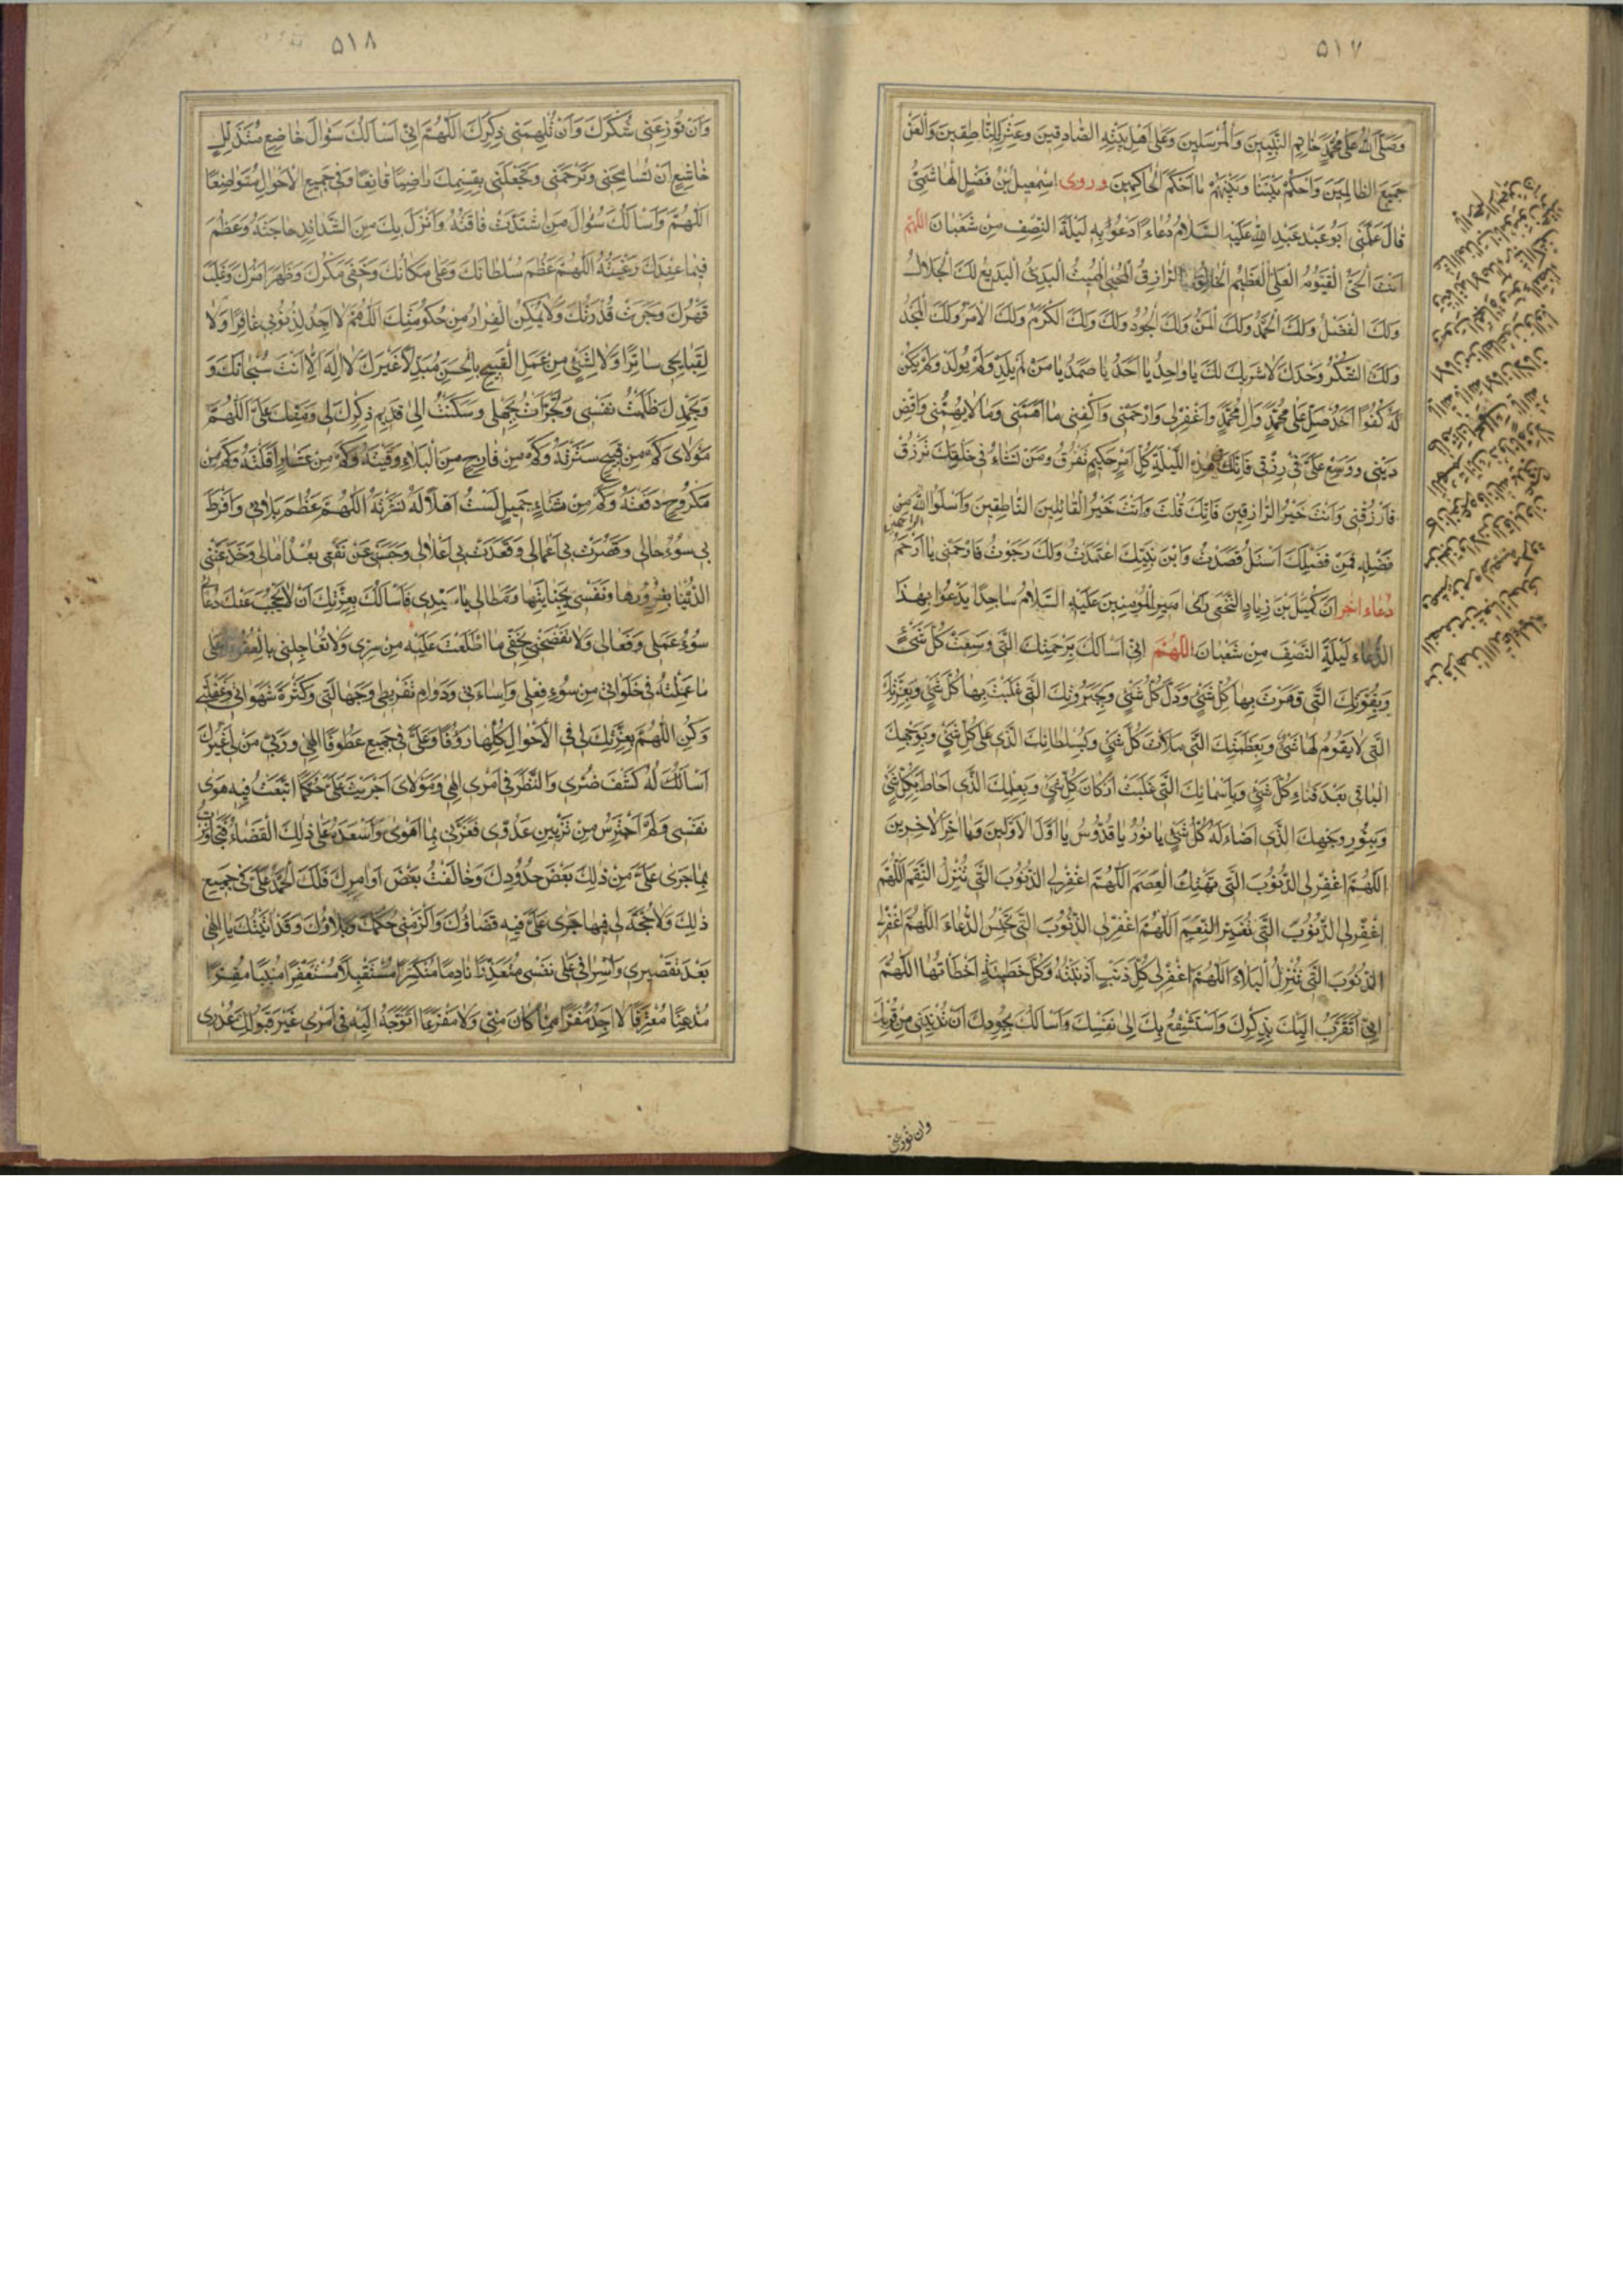 ۵۱۷
وَصَلَّى اللهُ عَلى مُحَمَّدٍ خاتِمِ النَّبِيّينَ وَالْمُرْسَلينَ وَعَلى اَهْلِ بَيْتِهِ الصّادِقينَ وَعِتْرَتِهِ النّاطِقينَ وَالْعَنْ
جَميعَ الظّالِمينَ وَاحْكُمْ بَيْنَنا وَبَيْنَهُمْ يا اَحْكَمَ الْحاكِمينَ وروى اِسْمعيلُ بْنُ فَضْلٍ الْهاشِمِيُّ
قالَ عَلَّمَنى اَبُو عَبْد عَبدِ اللهِ عَلَيْهِ السَّلامُ دُعاءً اَدْعُوا بِهِ لَيْلَةَ النِّصْفِ مِنْ شَعْبانَ اللّهُمَّ
اَنْتَ الْحَىُّ الْقَيُّومُ الْعَلِىُّ الْعَظيمُ الْخالِقُ الرّازِقُ الْمُحْيِى الْمُميتُ الْبَدىءُ الْبَديعُ لَكَ الْجَلالُ
وَلَكَ الْفَضْلُ وَلَكَ الْحَمْدُ وَلَكَ الْمَنُّ وَلَكَ الْجُودُ وَلَكَ وَلَكَ الْكَرَمُ وَلَكَ الْاَمْرُ وَلَكَ الْمَجْدُ
وَلَكَ الشُّكْرُ وَحْدَكَ لا شَريكَ لَكَ يا واحِدُ يا اَحَدُ يا صَمَدُ يا مَنْ لَمْ يَلِدْ وَلَمْ يُولَدْ وَلَمْ يَكُنْ
لَهُ كُفُوًا اَحَدٌ صَلِّ عَلى مُحَمَّدٍ وَالِ مُحَمَّدٍ وَاغْفِرْ لى وَارْحَمْنى وَاكْفِنى ما اَهَمَّنى وَما لا يُهِمُّنى وَاقْضِ
دَيْنى وَوَسِّعْ عَلَىَّ فى رِزْقى فَاِنَّكَ فى هذِهِ اللَّيْلَةِ كُلَّ اَمْرٍ حَكيمٍ تَفْرُقُ وَمَنْ تَشاءُ فى خَلْقِكَ تَرْزُقُ
فَارْزُقْنى وَاَنْتَ خَيْرُ الرّازِقينَ فَاِنَّكَ قُلْتَ وَاَنْتَ خَيْرُ الْقائِلينَ النّاطِقينَ وَاسْئَلُوا اللهَ مِنْ
فَضْلِهِ فَمِنْ فَضْلِكَ اَسْئَلُ وَاِيّاكَ قَصَدْتُ وَابْنَ نَبِيِّكَ اعْتَمَدْتُ وَلَكَ رَجَوْتُ فَارْحَمْنى يا اَرْحَمَ الرّاحِمينَ
دعاء اخر اَنَّ كُمَيْلَ بْنَ زِيادِ النَّخَعِىِّ رَاى اَميرَ الْمُؤْمِنينَ عَلَيْهِ السَّلامُ ساجِدًا يَدْعُوا بِهذَا
الدُّعاء لَيْلَةَ النِّصْفِ مِنْ شَعْبانَ اللّهُمَّ اِنّى اَسْاَلُكَ بِرَحْمَتِكَ الَّتى وَسِعَتْ كُلَّ شَىْءٍ
وَبِقُوَّتِكَ الَّتى قَهَرْتَ بِها كُلَّ شَىْءٍ وَذَلَّ كُلُّ شَىْءٍ وَبِجَبَرُوتِكَ الَّتى غَلَبْتَ بِها كُلَّ شَىْءٍ وَبِعِزَّتِكَ
الَّتى لا يَقُومُ لَها شَىْءٌ وَبِعَظَمَتِكَ الَّتى مَلَاَتْ كُلَّ شَىْءٍ وَبِسُلْطانِكَ الَّذى عَلا كُلَّ شَىْءٍ وَبِوَجْهِكَ
الْباقى بَعْدَ فَناءِ كُلِّ شَىْءٍ وَبِاَسْمائِكَ الَّتى غَلَبَتْ اَرْكانَ كُلِّ شَىْءٍ وَبِعِلْمِكَ الَّذى اَحاطَ بِكُلِّ شَىْءٍ
وَبِنُورِ وَجْهِكَ الَّذى اَضاءَ لَهُ كُلُّ شَىْءٍ يا نُورُ يا قُدُّوسُ يا اَوَّلَ الْاَوَّلينَ وَيا اخِرَ الْاخِرينَ
اللّهُمَّ اغْفِرْ لِىَ الذُّنُوبَ الَّتى تَهْتِكُ الْعِصَمَ اللّهُمَّ اغْفِرْ لِىَ الذُّنُوبَ الَّتى تُنْزِلُ النِّقَمَ اللّهُمَّ
اغْفِرْ لِىَ الذُّنُوبَ الَّتى تُغَيِّرُ النِّعَمَ اللّهُمَّ اغْفِرْ لِىَ الذُّنُوبَ الَّتى تَحْبِسُ الدُّعاءَ اللّهُمَّ اغْفِرْ لِىَ
الذُّنُوبَ الَّتى تُنْزِلُ الْبَلاءَ اللّهُمَّ اغْفِرْ لى كُلَّ ذَنْبٍ اَذْنَبْتُهُ وَكُلَّ خَطيئَةٍ اَخْطَاْتُها اللّهُمَّ
اِنّى اَتَقَرَّبُ اِلَيْكَ بِذِكْرِكَ وَاَسْتَشْفِعُ بِكَ اِلى نَفْسِكَ وَاَسْاَلُكَ بِجُودِكَ اَنْ تُدْنِيَنى مِنْ قُرْبِكَ
وان توزعنى
۵۱۸
وَاَنْ تُوزِعَنى شُكْرَكَ وَاَنْ تُلْهِمَنى ذِكْرَكَ اَللّهُمَّ اِنّى اَسْاَلُكَ سُؤالَ خاضِعٍ مُتَذَلِّلٍ
خاشِعٍ اَنْ تُسامِحَنى وَتَرْحَمَنى وَتَجْعَلَنى بِقِسْمِكَ راضِيًا قانِعًا وَفى جَميعِ الْاَحْوالِ مُتَواضِعًا
اللّهُمَّ وَاَسْاَلُكَ سُؤالَ مَنِ اشْتَدَّتْ فاقَتُهُ وَاَنْزَلَ بِكَ مِنَ الشَّدائِدِ حاجَتَهُ وَعَظُمَ
فيما عِنْدَكَ رَغْبَتُهُ اَللّهُمَّ عَظُمَ سُلْطانُكَ وَعَلا مَكانُكَ وَخَفِىَ مَكْرُكَ وَظَهَرَ اَمْرُكَ وَغَلَبَ
قَهْرُكَ وَجَرَتْ قُدْرَتُكَ وَلا يُمْكِنُ الْفِرارُ مِنْ حُكُومَتِكَ اَللّهُمَّ لا اَجِدُ لِذُنُوبى غافِرًا وَلا
لِقَبايِحى ساتِرًا وَلا لِشَىْءٍ مِنْ عَمَلِىَ الْقَبيحِ بِالْحَسَنِ مُبَدِّلًا غَيْرَكَ لا اِلهَ اِلّا اَنْتَ سُبْحانَكَ وَ
وَبِحَمْدِكَ ظَلَمْتُ نَفْسى وَتَجَرَّاْتُ بِجَهْلى وَسَكَنْتُ اِلى قَديمِ ذِكْرِكَ لى وَمَنِّكَ عَلَىَّ اَللّهُمَّ
مَوْلاىَ كَمْ مِنْ قَبيحٍ سَتَرْتَهُ وَكَمْ مِنْ فادِحٍ مِنَ الْبَلاءِ وَقَيْتَهُ وَكَمْ مِنْ عِثارٍ اَقَلْتَهُ وَكَمْ مِنْ
مَكْرُوهٍ دَفَعْتَهُ وَكَمْ مِنْ ثَناءٍ جَميلٍ لَسْتُ اَهْلًا لَهُ نَشَرْتَهُ اَللّهُمَّ عَظُمَ بَلائى وَاَفْرَطَ
بى سُوءُ حالى وَقَصُرَتْ بى اَعْمالى وَقَعَدَتْ بى اَغْلالى وَحَبَسَنى عَنْ نَفْعى بُعْدُ امالى وَخَدَعَتْنِى
الدُّنْيا بِغُرُورِها وَنَفْسى بِجِنايَتِها وَمِطالى يا سَيِّدى فَاَسْاَلُكَ بِعِزَّتِكَ اَنْ لا يَحْجُبَ عَنْكَ دُعائى
سُوءُ عَمَلى وَفِعالى وَلا تَفْضَحْنى بِخَفِىِّ مَا اطَّلَعْتَ عَلَيْهِ مِنْ سِرّى وَلا تُعاجِلْنى بِالْعُقُوبَةِ عَلى
ما عَمِلْتُهُ فى خَلَواتى مِنْ سُوءِ فِعْلى وَاِساءَتى وَدَوامِ تَفْريطى وَجَهالَتى وَكَثْرَةِ شَهَواتى وَغَفْلَتى
وَكُنِ اللّهُمَّ بِعِزَّتِكَ لى فِى الْاَحْوالِ كُلِّها رَؤُفًا وَعَلَىَّ فى جَميعِ عَطُوفًا اِلهى وَرَبّى مَنْ لى غَيْرُكَ
اَسْاَلُهُ كَشْفَ ضُرّى وَالنَّظَرَ فى اَمْرى اِلهى وَمَوْلاىَ اَجْرَيْتَ عَلَىَّ حُكْمًا اتَّبَعْتُ فيهِ هَوى
نَفْسى وَلَمْ اَحْتَرِسْ مِنْ تَزْيينِ عَدُوّى فَغَرَّنى بِما اَهْوى وَاَسْعَدَهُ عَلى ذلِكَ الْقَضاءُ فَتَجاوَزْتُ
بِما جَرى عَلَىَّ مِنْ ذلِكَ بَعْضَ حُدُودِكَ وَخالَفْتُ بَعْضَ اَوامِرِكَ فَلَكَ الْحَمْدُ عَلَىَّ فى جَميعِ
ذلِكَ وَلا حُجَّةَ لى فيما جَرى عَلَىَّ فيهِ قَضاؤُكَ وَاَلْزَمَنى حُكْمُكَ وَبَلاؤُكَ وَقَدْ اَتَيْتُكَ يا اِلهى
بَعْدَ تَقْصيرى وَاِسْرافى عَلى نَفْسى مُعْتَذِرًا نادِمًا مُنْكَسِرًا مُسْتَقيلًا مُسْتَغْفِرًا مُنيبًا مُقِرًّا
مُذْعِنًا مُعْتَرِفًا لا اَجِدُ مَفَرًّا مِمّا كانَ مِنّى وَلا مَفْزَعًا اَتَوَجَّهُ اِلَيْهِ فى اَمْرى غَيْرَ قَبُولِكَ عُذْرى